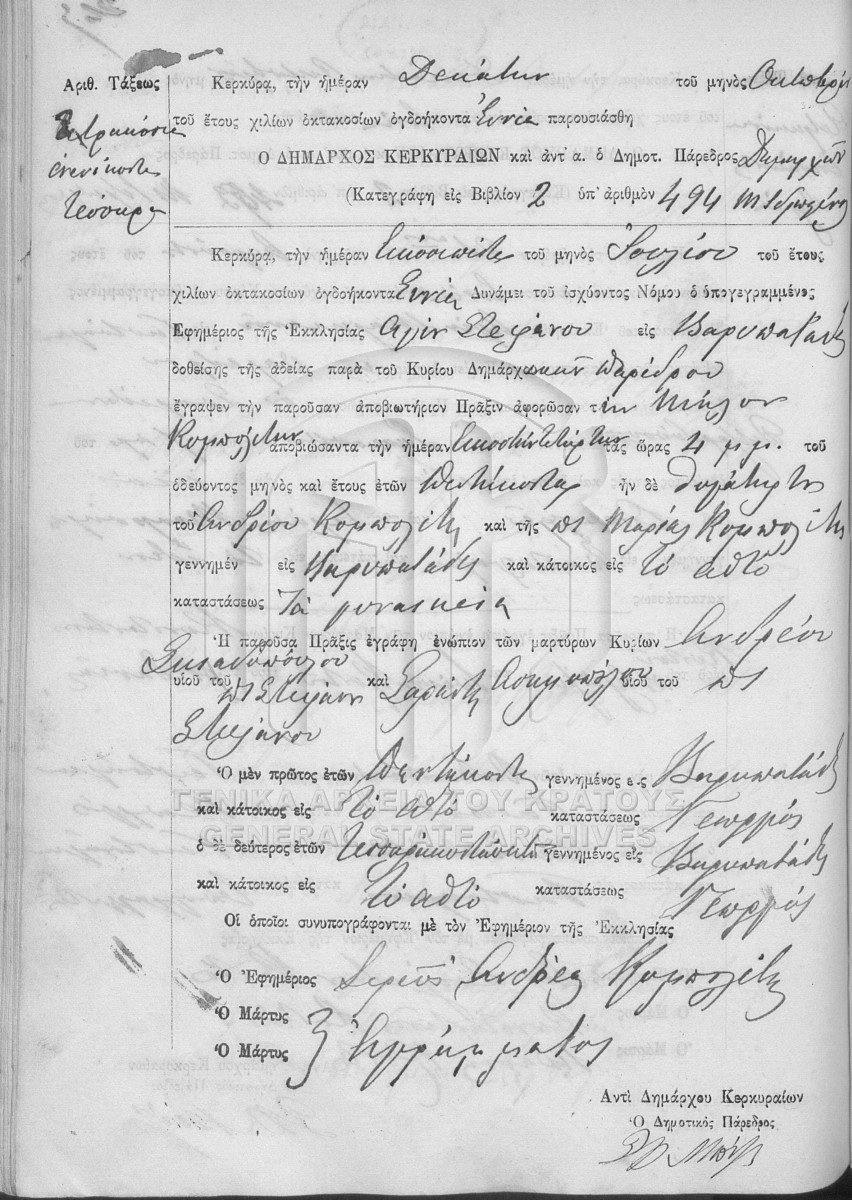 Ἀριθ. Τάξεως
Τετρακόσια
ἐνενίκοντα
τέσσαρα
Κερκύρα, τὴν ἡμέραν Δεκάτην τοῦ μηνὸς Ὀκτωβρίου
τοῦ ἔτους χιλίων ὀκτακοσίων ὀγδοήκοντα Ἐννέα παρουσιάσθη
Ὁ ΔΗΜΑΡΧΟΣ ΚΕΡΚΥΡΑΙΩΝ καὶ ἀντ' α. ὁ Δημοτ. Πάρεδρος
(Κατεγράφη εἰς Βιβλίον 2 ὑπ' ἀριθμὸν 494
Κερκύρα, τὴν ἡμέραν Εἰκοσιπέντε τοῦ μηνὸς Ἰουλίου τοῦ ἔτους
χιλίων ὀκτακοσίων ὀγδοήκοντα Ἐννέα Δυνάμει τοῦ ἰσχύοντος Νόμου ὁ ὑπογεγραμμένος
Ἐφημέριος τῆς Ἐκκλησίας Ἁγίου Στεφάνου εἰς Βαρυπατάδες
δοθείσης τῆς ἀδείας παρὰ τοῦ Κυρίου Δημάρχ Παρέδρου
ἔγραψεν τὴν παροῦσαν ἀποβιωτήριον Πρᾶξιν ἀφορῶσαν τὴν
Κομπολίτην ἀποβιώσαντα τὴν ἡμέραν Εἰκοστὴν τετάρτην τὰς ὥρας 4 μ.μ. τοῦ
ὁδεύοντος μηνὸς καὶ ἔτους ἐτῶν Πεντήκοντα ἦν δὲ θυγάτηρ της
τοῦ Ἀνδρέου Κομπολίτη καὶ τῆς πτ Μαρίας Κομπολίτη
γεννημέν εἰς Βαρυπατάδες καὶ κάτοικος εἰς Τὸ αθτὸ
καταστάσεως Τὰ γυναικεία
Ἡ παροῦσα Πρᾶξις ἐγράφη ἐνώπιον τῶν μαρτύρων Κυρίων Ἀνδρέου
Σκιαδοπούλου
υἱοῦ τοῦ πτ Στεφάνου καὶ Σαράντη υἱοῦ τοῦ πτ
Στεφάνου
Ὁ μὲν πρῶτος ἐτῶν Πεντήκοντα γεννημένος εἰς Βαρυπατάδες
καὶ κάτοικος εἰς Τὸ αθτὸ καταστάσεως Γεωργός
ὁ δὲ δεύτερος ἐτῶν Τεσσαράκοντα γεννημένος εἰς Βαρυπατάδες
καὶ κάτοικος εἰς Τὸ αθτὸ καταστάσεως Γεωργός
Οἱ ὁποῖοι συνυπογράφονται μὲ τὸν Ἐφημέριον τῆς Ἐκκλησίας
Ὁ Ἐφημέριος Ἱερεὺς Ἀνδρέας Κομπολίτης
Ὁ Μάρτυς
Ὁ Μάρτυς } Ἀγράμματος
Ἀντὶ Δημάρχου Κερκυραίων
Ὁ Δημοτικὸς Πάρεδρος
ΓΕΝΙΚΑ ΑΡΧΕΙΑ ΤΟΥ ΚΡΑΤΟΥΣ
GENERAL STATE ARCHIVES